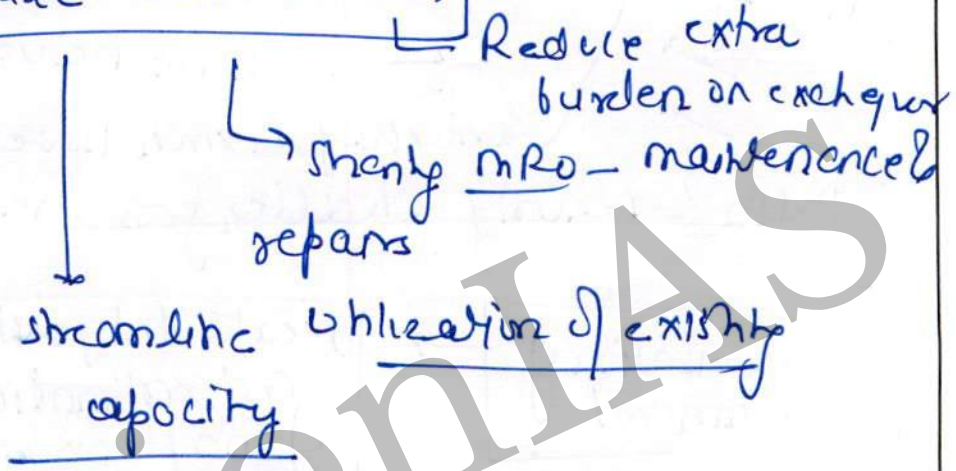 Reduce extra
burden on exchequer
Sharing MRO - maintenance &
repairs
streamline utilization of existing
capacity
ionIAS